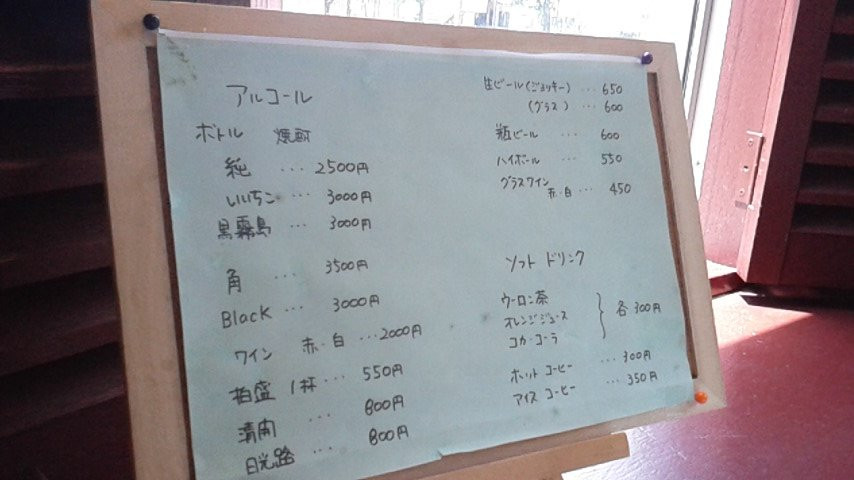 アルコール
ボトル 焼酎
純 ... 2500円
いいちこ ... 3000円
黒霧島 ... 3000円
角 ... 3500円
Black ... 3000円
ワイン 赤・白 ... 2000円
1杯 ... 550円
... 800円
日光路 ... 800円
生ビール(ジョッキー) ... 650
(グラス) ... 600
瓶ビール ... 600
ハイボール ... 550
グラスワイン
赤・白 ... 450
ソフト ドリンク
ウーロン茶
オレンジジュース
コカ・コーラ
各300円
ホット コーヒー ... 300円
アイス コーヒー ... 350円